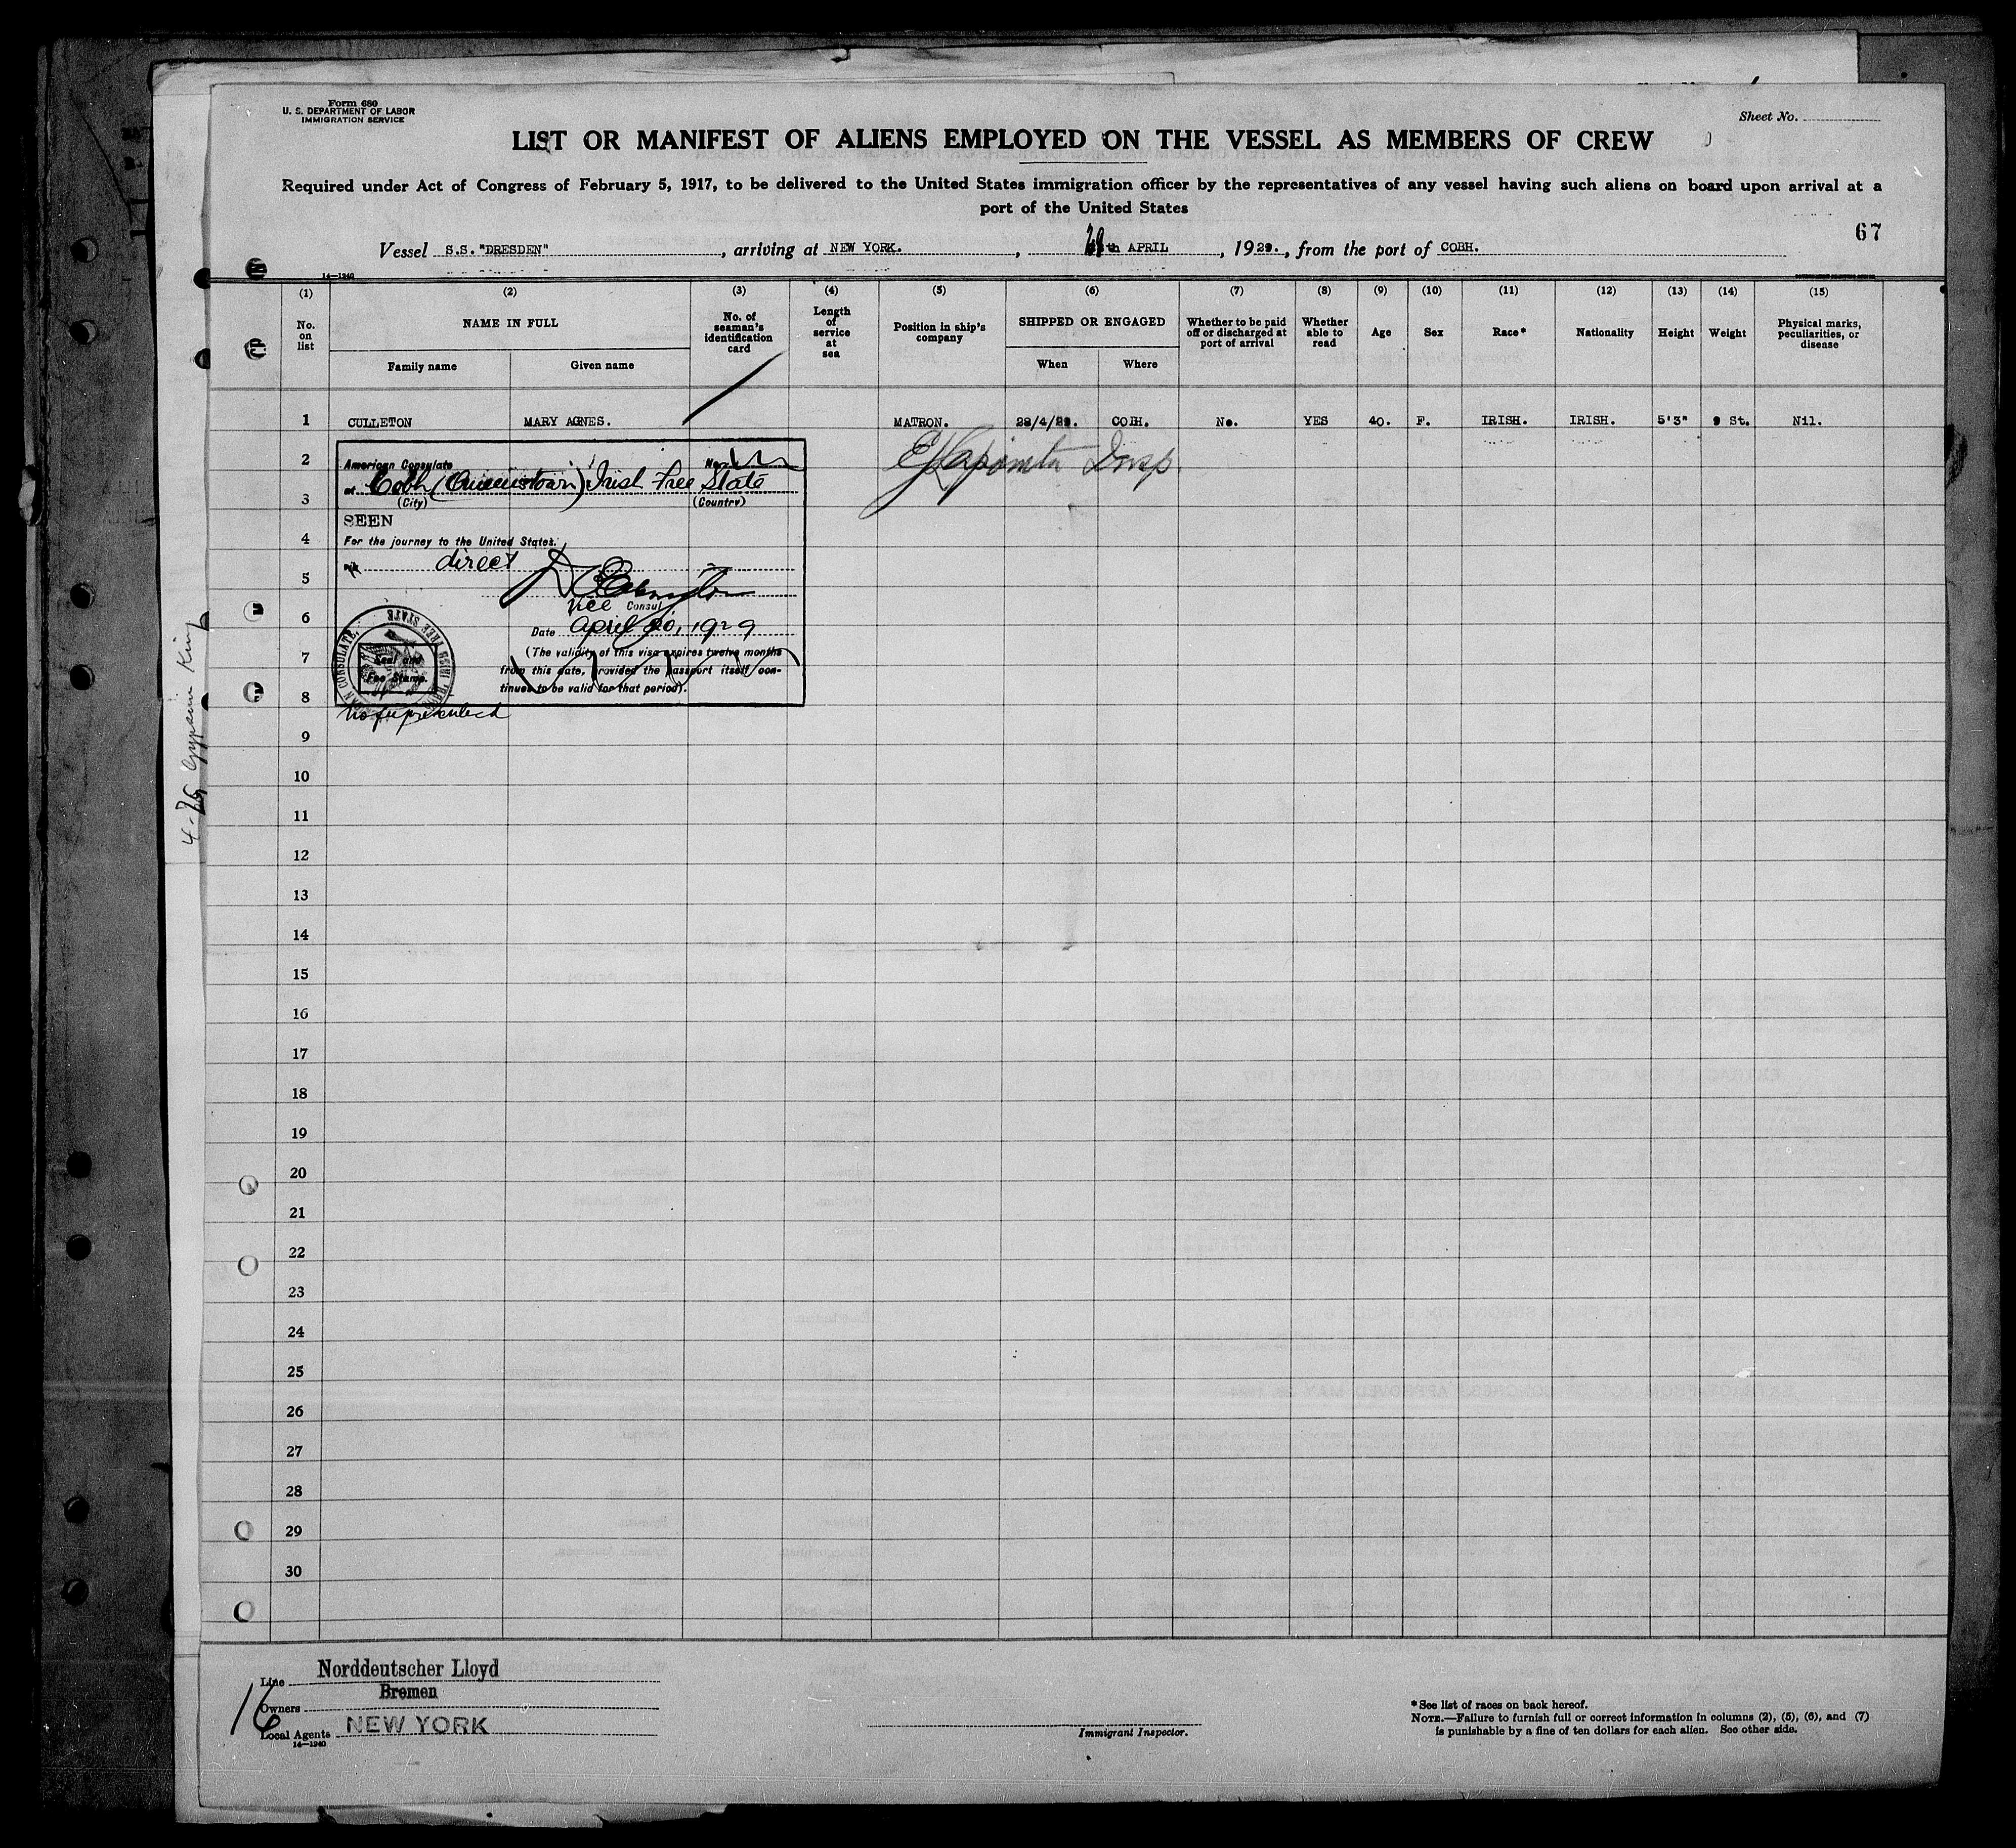 Form 680
U. S. DEPARTMENT OF LABOR
IMMIGRATION SERVICE
Sheet No.
LIST OR MANIFEST OF ALIENS EMPLOYED ON THE VESSEL AS MEMBERS OF CREW
Required under Act of Congress of February 5, 1917, to be delivered to the United States immigration officer by the representatives of any vessel having such aliens on board upon arrival at a
port of the United States
67
Vessel S.S. "DRESDEN" , arriving at NEW YORK. , th APRIL , 1929. , from the port of COBH.
14—1240
(1) (2) (3) (4) (5) (6) (7) (8) (9) (10) (11) (12) (13) (14) (15)
No. on list
NAME IN FULL
Family name
Given name
No. of seaman's identification card
Length of service at sea
Position in ship's company
SHIPPED OR ENGAGED
When
Where
Whether to be paid off or discharged at port of arrival
Whether able to read
Age
Sex
Race*
Nationality
Height
Weight
Physical marks, peculiarities, or disease
1 CULLETON MARY AGNES. MATRON. /4/29. COBH. No. YES 40. F. IRISH. IRISH. 5'3" 9 St. Nil.
Insp.
2
American Consulate No.
at Cobh (Queenstown) Irish Free State
3
(City) (Country)
SEEN
4
For the journey to the United States.
direct
5
Vice Consul
6
Date April 20, 1929
7
(The validity of this visa expires twelve months
from this date, provided the passport itself con-
tinues to be valid for that period).
Seal and
Fee Stamp.
CONSULATE
IRISH FREE STATE
8
No fee
9
10
11
12
13
14
15
16
17
18
19
20
21
22
23
24
25
26
27
28
29
30
16
Line Norddeutscher Lloyd
Owners Bremen
Local Agents NEW YORK
14—1240
Immigrant Inspector.
*See list of races on back hereof.
NOTE.—Failure to furnish full or correct information in columns (2), (5), (6), and (7)
is punishable by a fine of ten dollars for each alien. See other side.